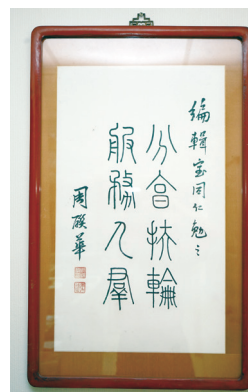 編輯室同仁勉之
分享扶輪
服務人羣
周聯華